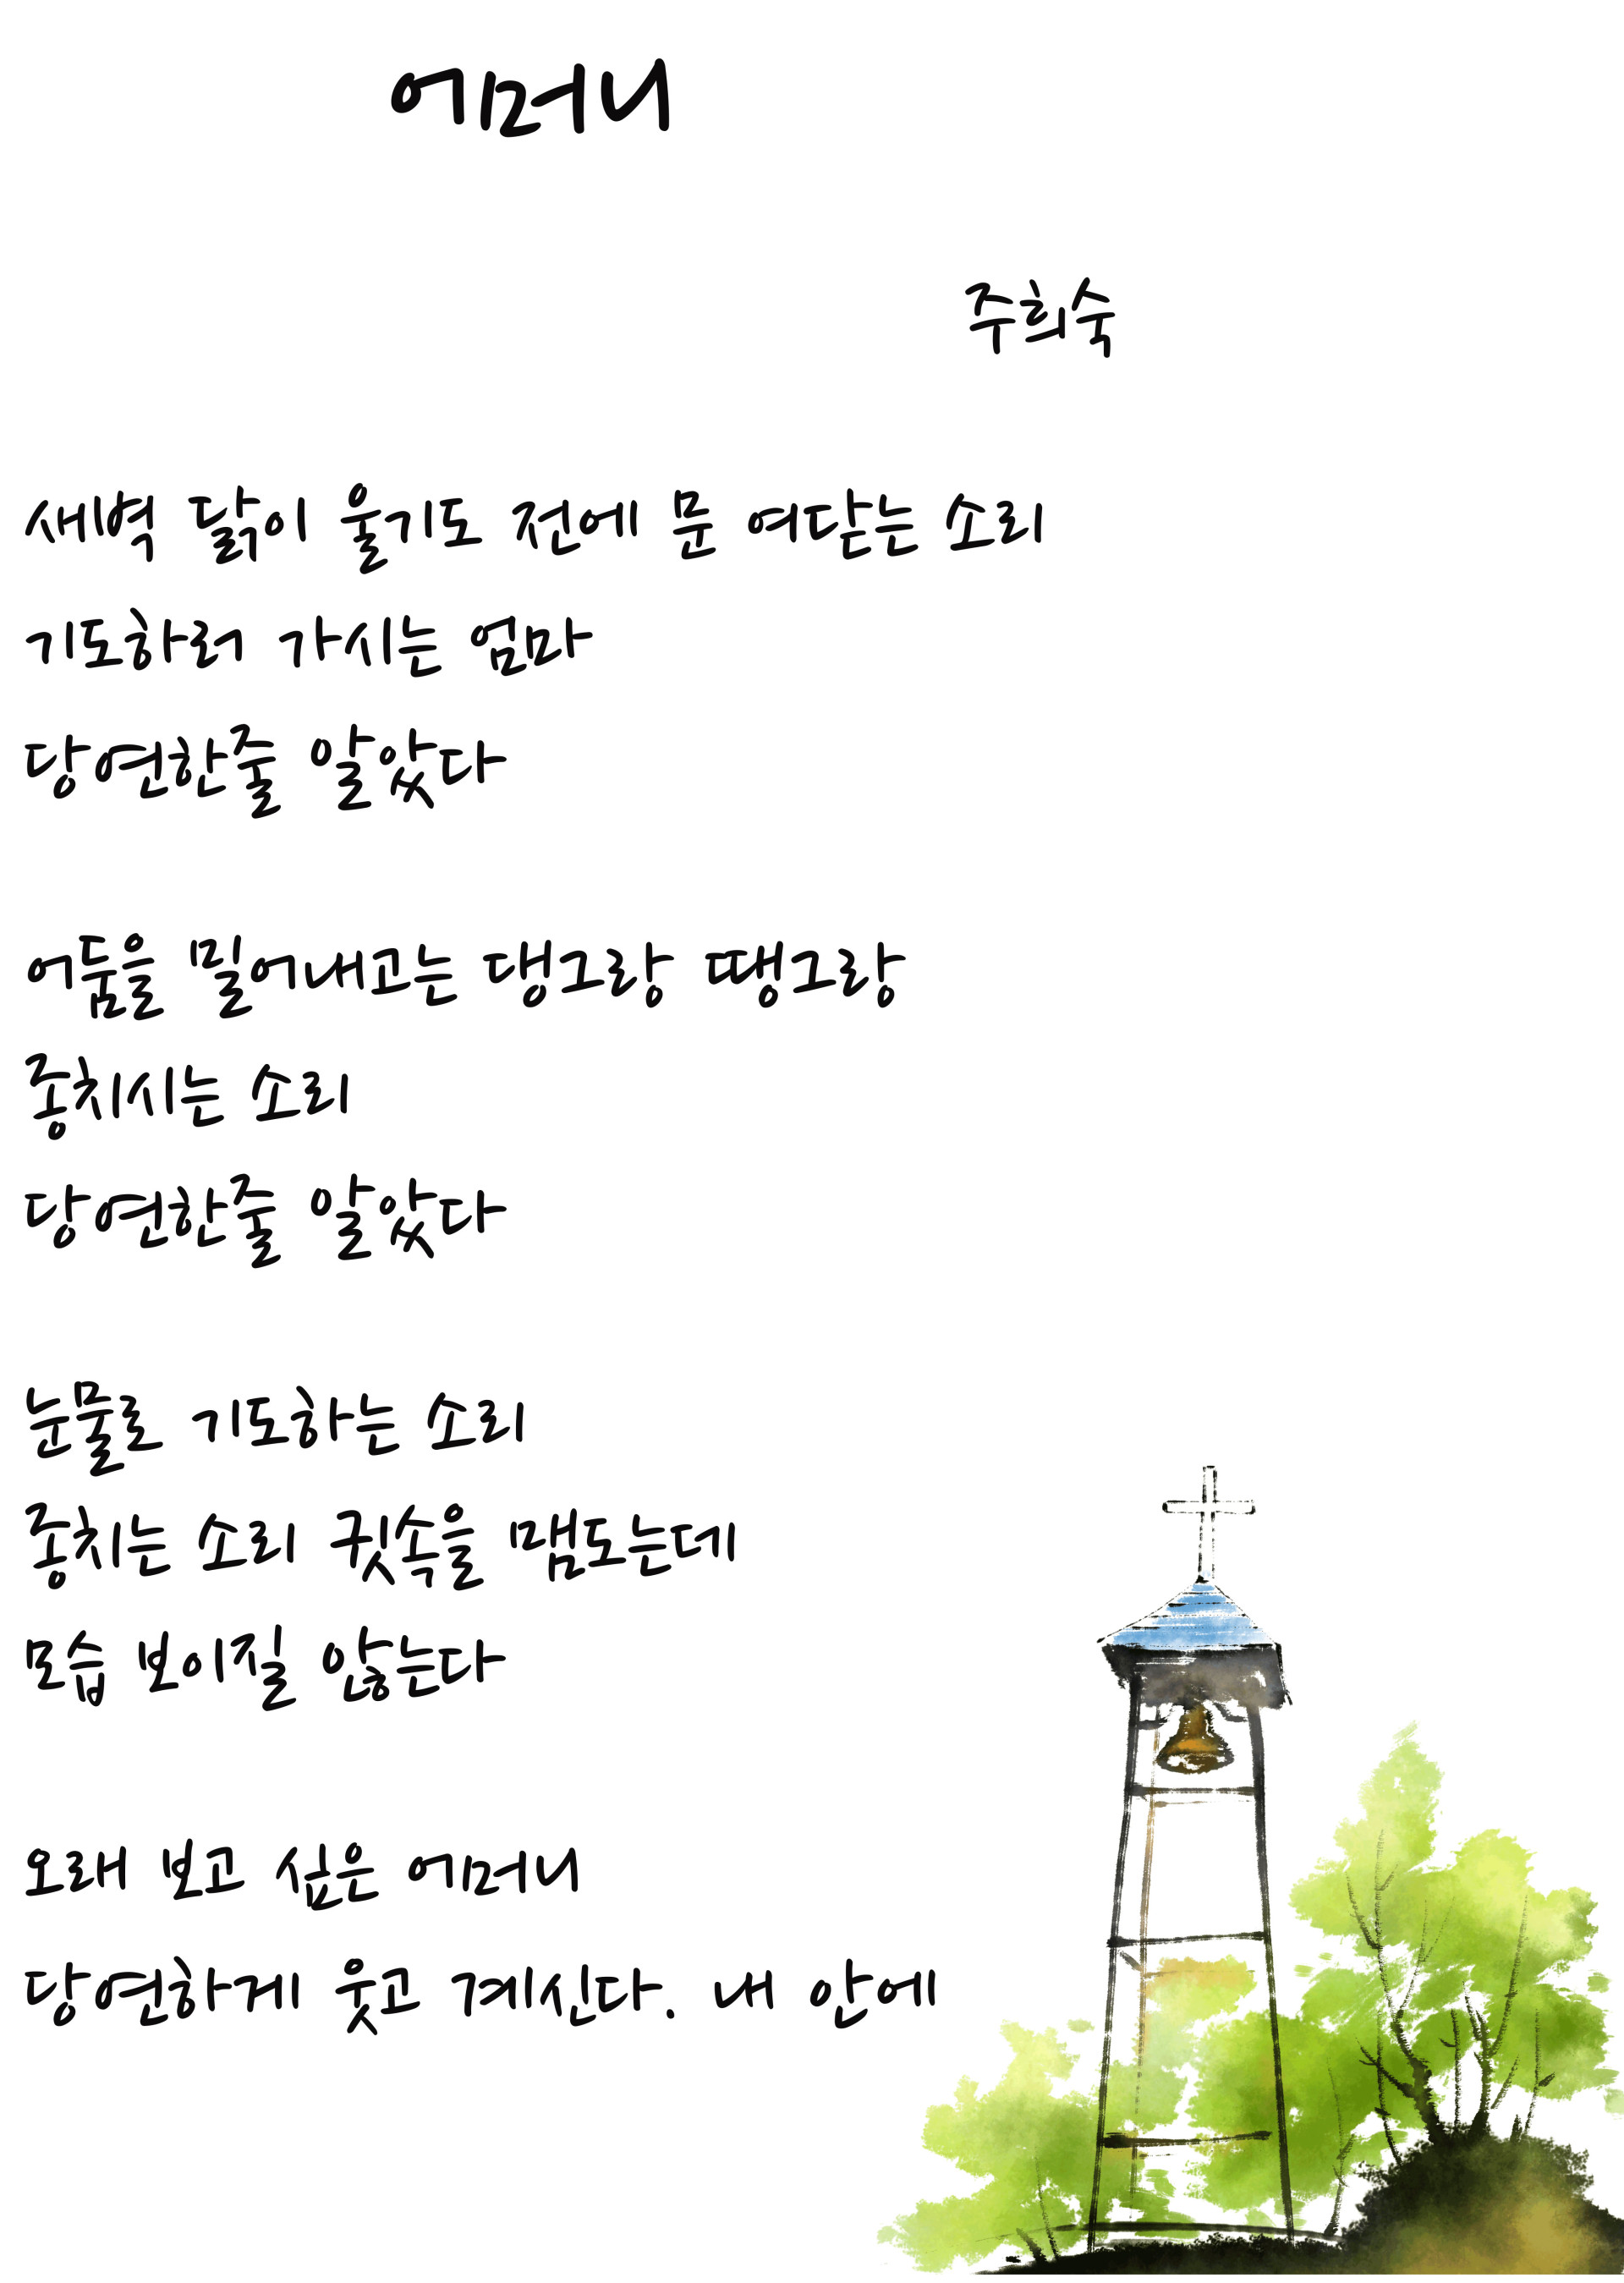 에머니
주희숙
새벽 닭이 울기도 전에 문 여닫는 소리
기도하러 가시는 엄마
당연한줄 알았다
어둠을 밀어내고는 댕그랑 땡그랑
종치시는 소리
당연한줄 알았다
눈물로 기도하는 소리
종치는 소리 귓속을 맴도는데
모습 보이질 않는다
오래 보고 싶은 에머니
당연하게 웃고 계신다. 내 안에